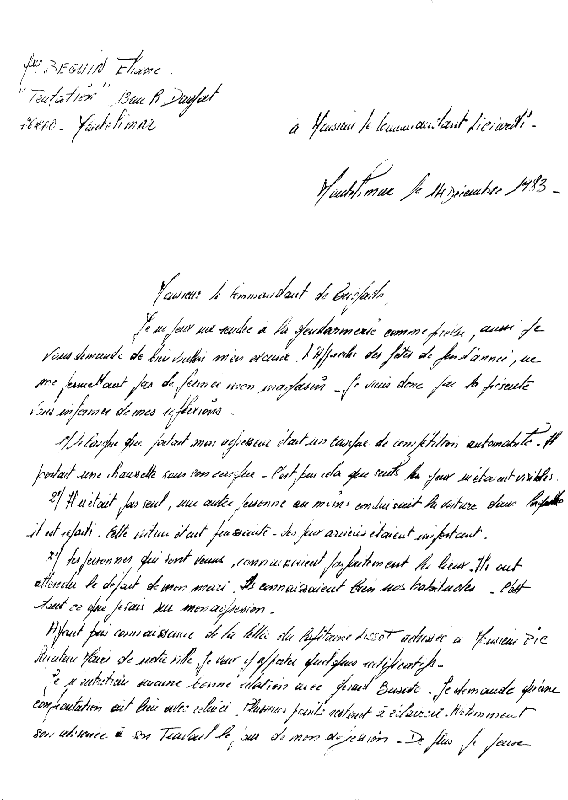 Mme BEGUIN Eliane.
"Tentation" 13 rue R Daujat
26200 - Montélimar
à Monsieur le Commandant
Montélimar le 14 Décembre 1983 -
Monsieur le Commandant de
Je ne peux me rendre à la gendarmerie comme prévu, aussi je
vous demande de bien vouloir m'en excuser. L'approche des fêtes de fin d'année, ne
me permettant pas de fermer mon magasin. Je viens donc par la présente
vous informer de mes réflexions.
1) Le casque que portait mon agresseur était un casque de compétition automobile. Il
portait une chaussette sous son casque - C'est pas cela que seuls les yeux m'étaient visibles.
2) Il n'était pas seul, une autre personne au moins conduisait la voiture dans laquelle
il est reparti. Cette voiture était puissante - Les feux arrières étaient important.
3) Les personnes qui sont venues, connaissaient parfaitement les lieux. Ils ont
attendu le départ de mon mari. Ils connaissaient bien nos habitudes - C'est
tout ce que je sais sur mon agression.
Ayant pris connaissance de la lettre du Capitaine adressée à Monsieur PIC
Sénateur Maire de notre ville, je veux y apporter quelques rectificatifs.
Je n'entretien aucune bonne relation avec Gérard. Je demande qu'une
confrontation ait lieu avec celui-ci. Plusieurs points restent à éclaircir. Notamment
son absence à son Travail le jour de mon agression - De plus je pense